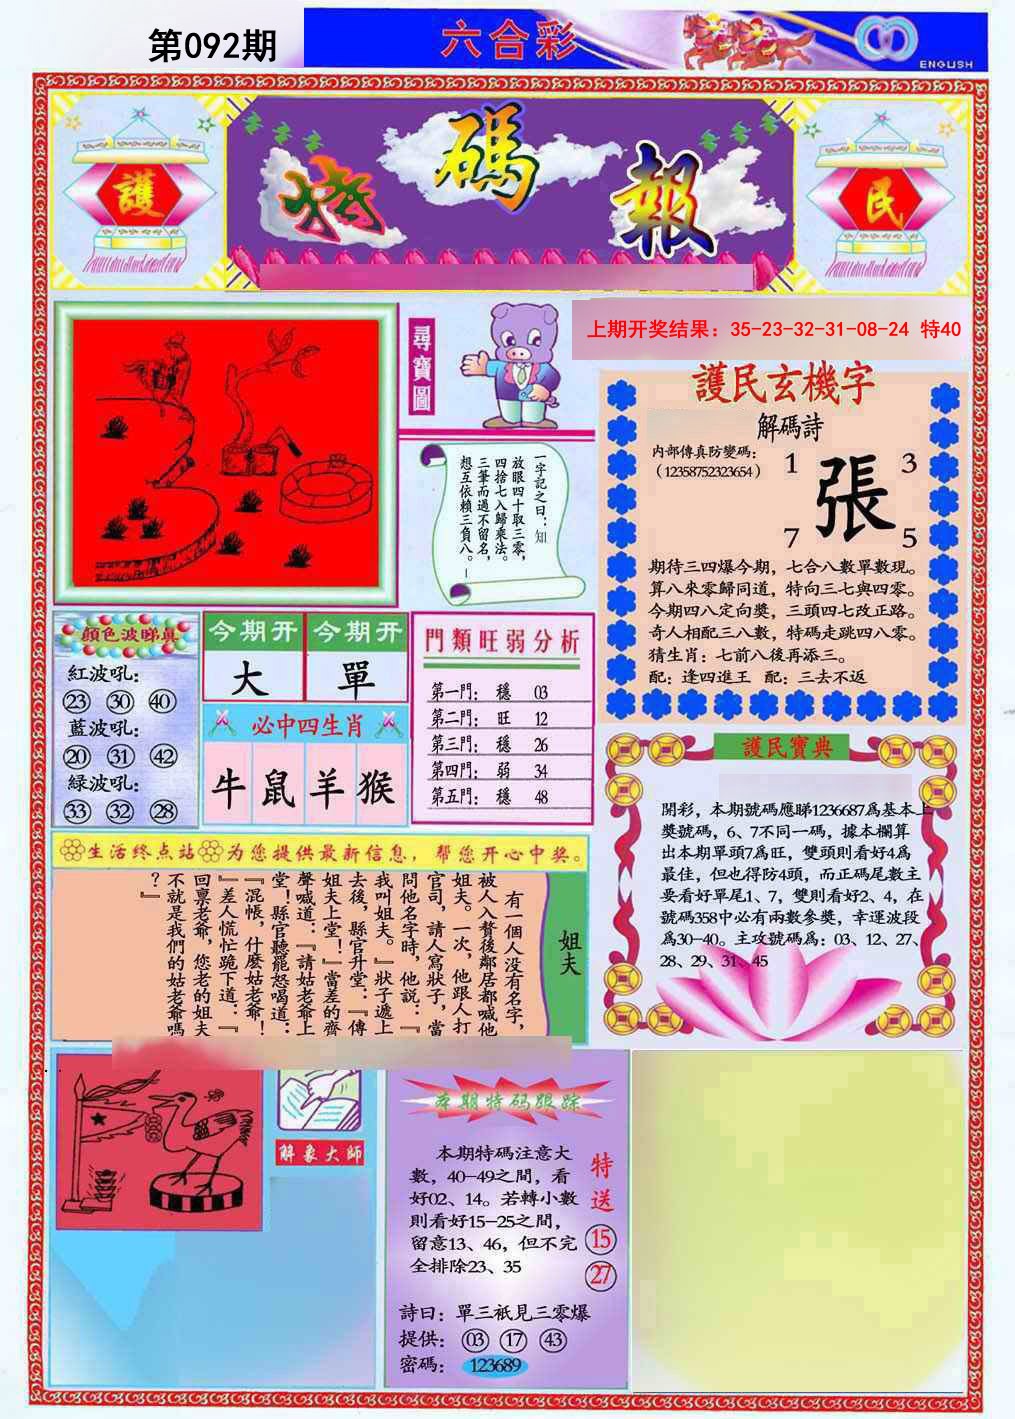 第092期
六合彩
ENGLISH
護
特碼報
民
上期开奖结果：35-23-32-31-08-24 特40
尋寶圖
一字記之曰：知
放眼四十取三零，
四捨七入歸乘法。
三筆而過不留名，
想互依賴三負八。
護民玄機字
解碼詩
内部傳真防變碼：
（12358752323654）
1 3
張
7 5
期待三四爆今期，七合八數單數現。
算八來零歸同道，特向三七與四零。
今期四八定向獎，三頭四七改正路。
奇人相配三八數，特碼走跳四八零。
猜生肖：七前八後再添三。
配：逢四進王 配：三去不返
顔色波睇真
紅波吼：
23 30 40
藍波吼：
20 31 42
緑波吼：
33 32 28
今期开 今期开
大 單
必中四生肖
牛 鼠 羊 猴
門類旺弱分析
第一門： 穩 03
第二門： 旺 12
第三門： 穩 26
第四門： 弱 34
第五門： 穩 48
護民寶典
開彩，本期號碼應睇1236687爲基本上
獎號碼，6、7不同一碼，據本欄算
出本期單頭7爲旺，雙頭則看好4爲
最佳，但也得防4頭，而正碼尾數主
要看好單尾1、7，雙則看好2、4，在
號碼358中必有兩數參獎，幸運波段
爲30-40。主攻號碼爲：03、12、27、
28、29、31、45
生活终点站 为您提供最新信息，帮您开心中奖。
姐夫
有一個人没有名字，
被人入贅後鄰居都喊他
姐夫。一次，他跟人打
官司，請人寫狀子，當
問他名字時，他説：『
我叫姐夫。』狀子遞上
去後，縣官升堂：『傳
姐夫上堂！』當差的齊
聲喊道：『請姑老爺上
堂！縣官聽罷怒喝道：
『混帳，什麽姑老爺！
』差人慌忙跪下道：『
回禀老爺，您老的姐夫
不就是我們的姑老爺嗎
？』
解象大師
本期特码跟踪
本期特碼注意大
數，40-49之間，看
好02、14。若轉小數
則看好15-25之間，
留意13、46，但不完
全排除23、35
特送
15
27
詩曰：單三衹見三零爆
提供： 03 17 43
密碼： 123689